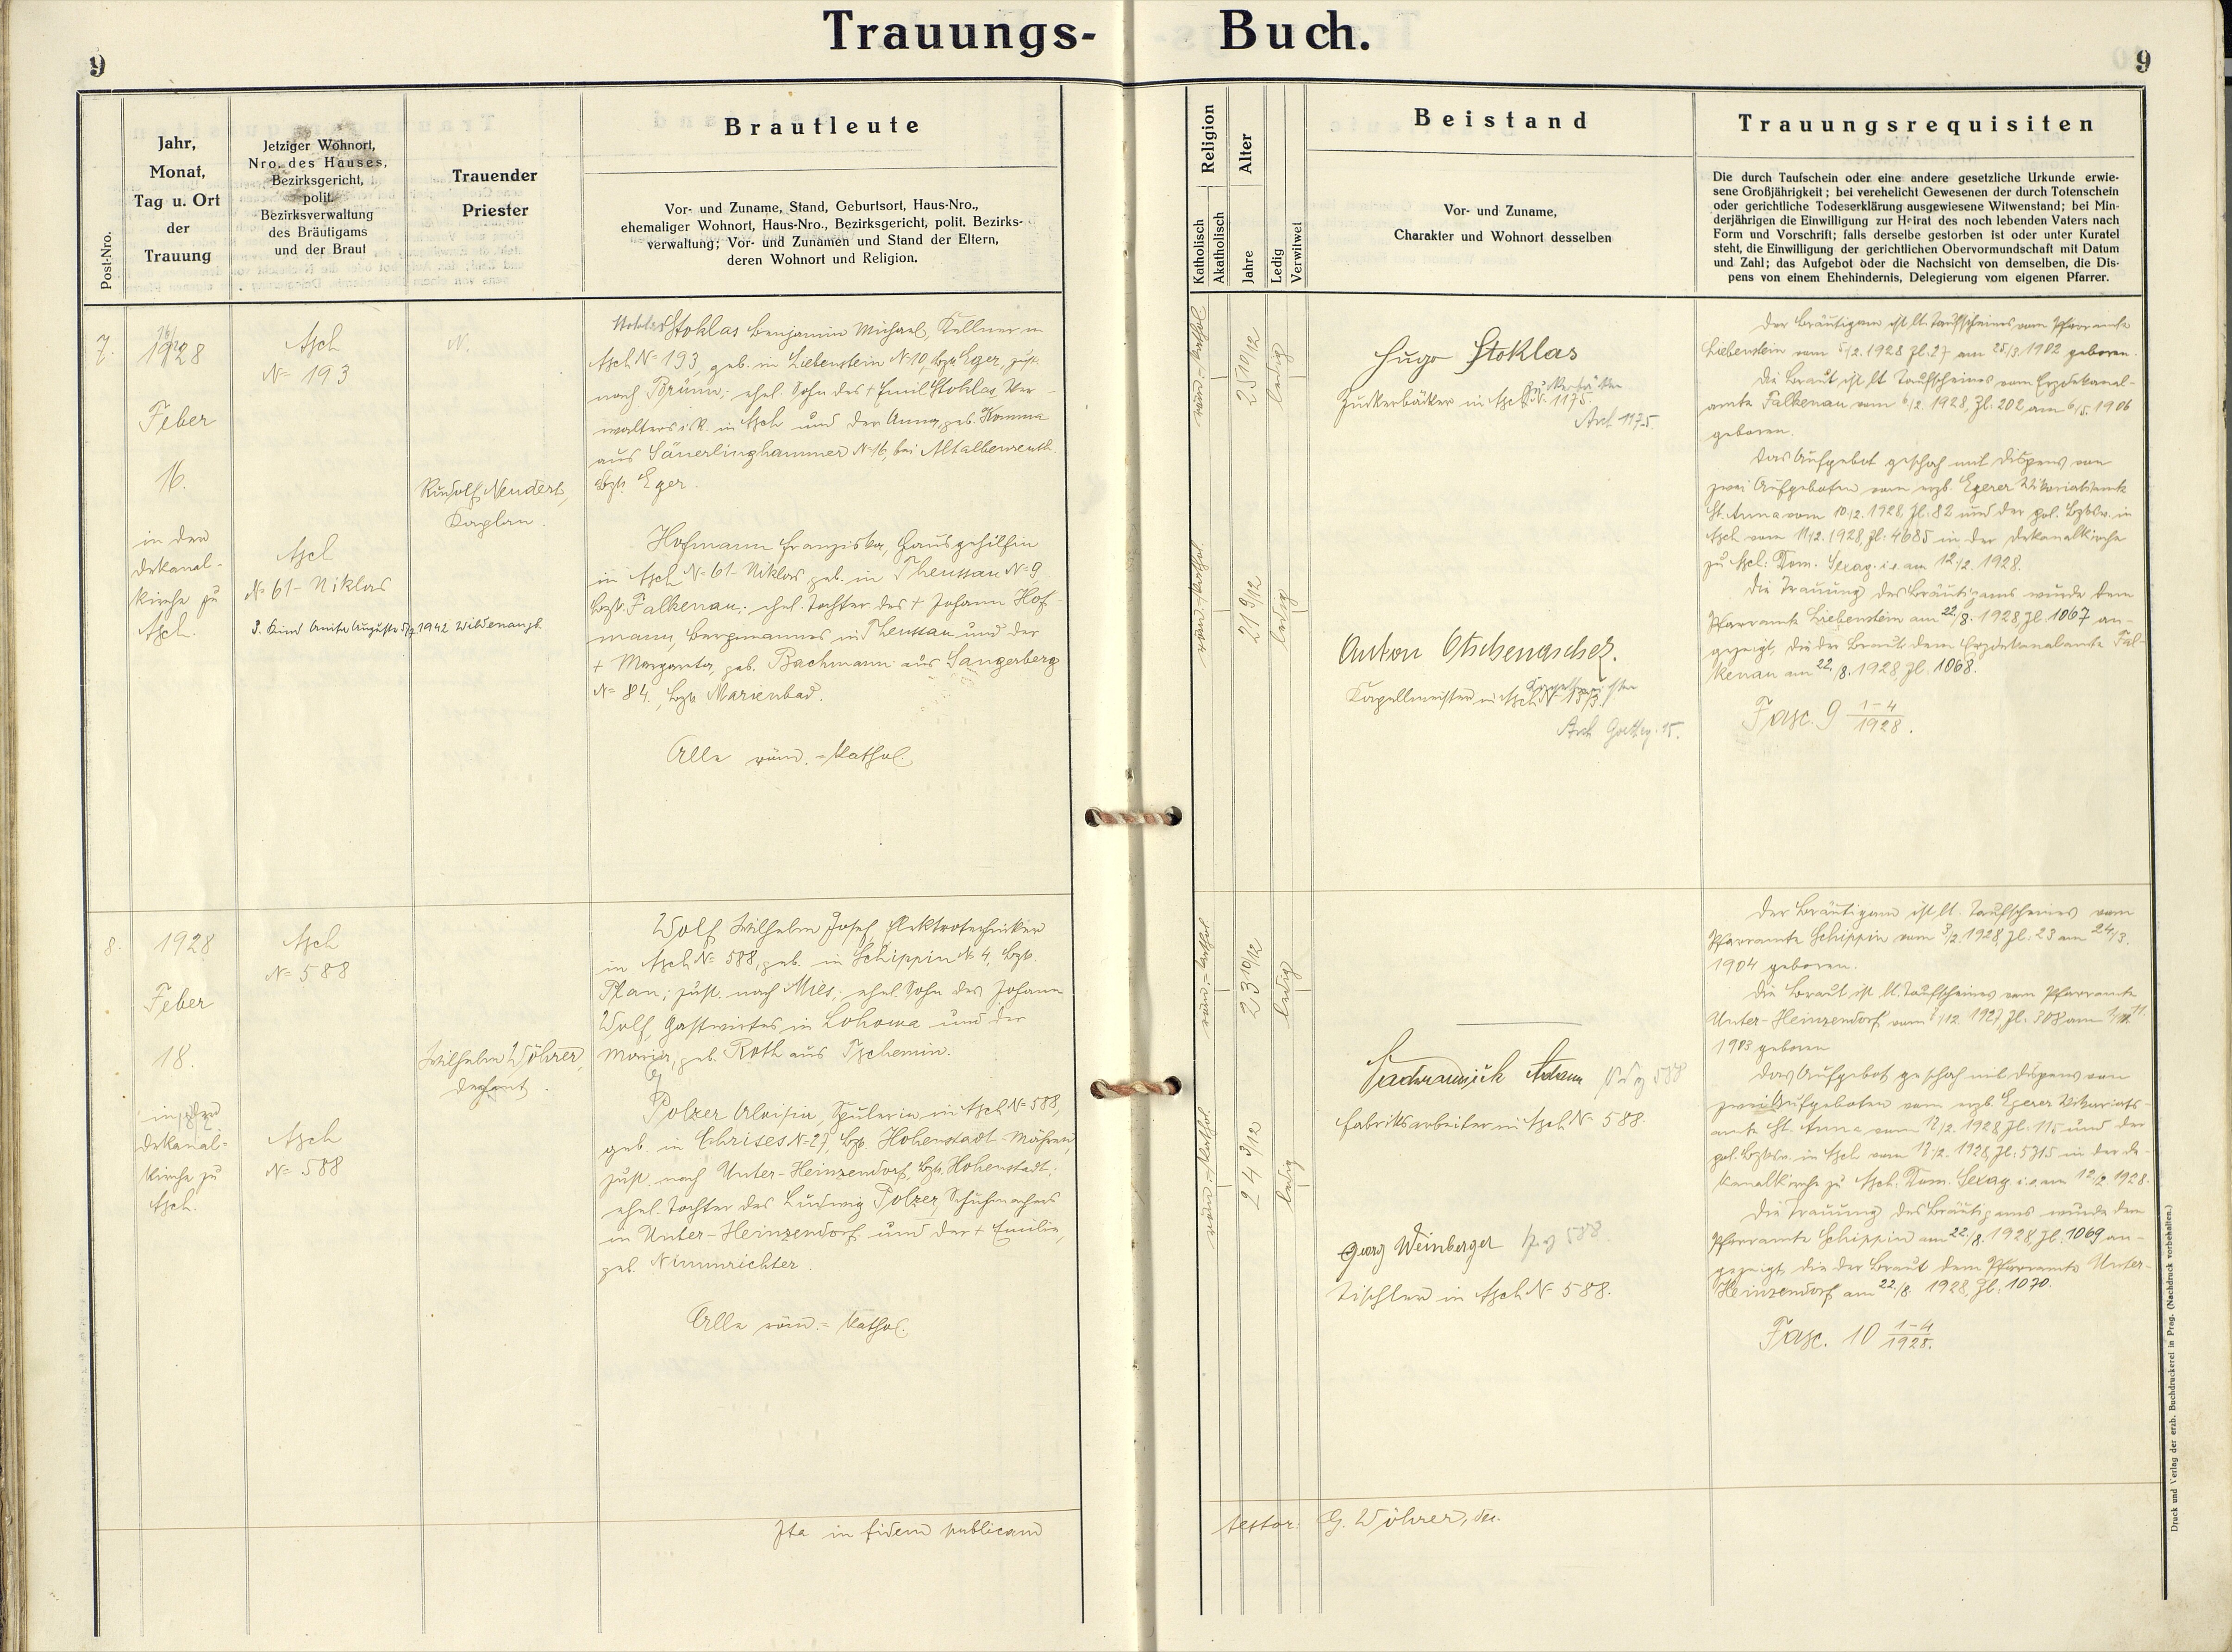 Trauungs- Buch.
9
9
Post-Nro.
Jahr,
Monat,
Tag u. Ort
der
Trauung
Jetziger Wohnort,
Nro. des Hauses,
Bezirksgericht,
polit.
Bezirksverwaltung
des Bräutigams
und der Braut
Trauender
Priester
Brautleute
Vor- und Zuname, Stand, Geburtsort, Haus-Nro.,
ehemaliger Wohnort, Haus-Nro., Bezirksgericht, polit. Bezirks-
verwaltung; Vor- und Zunamen und Stand der Eltern,
deren Wohnort und Religion.
Religion
Katholisch
Akatholisch
Alter
Jahre
Ledig
Verwitwet
Beistand
Vor- und Zuname,
Charakter und Wohnort desselben
Trauungsrequisiten
Die durch Taufschein oder eine andere gesetzliche Urkunde erwie-
sene Großjährigkeit; bei verehelicht Gewesenen der durch Totenschein
oder gerichtliche Todeserklärung ausgewiesene Witwenstand; bei Min-
derjährigen die Einwilligung zur Heirat des noch lebenden Vaters nach
Form und Vorschrift; falls derselbe gestorben ist oder unter Kuratel
steht, die Einwilligung der gerichtlichen Obervormundschaft mit Datum
und Zahl; das Aufgebot oder die Nachsicht von demselben, die Dis-
pens von einem Ehehindernis, Delegierung vom eigenen Pfarrer.
7.
1928
Feber
16.
in der
Dekanal-
kirche zu
Asch.
Asch
N= 193
Asch
N= 61 - Niklas
3. Kind Anita Auguste 5/9 1942 Wildenau get.
N.
Rudolf Neudert,
Kaplan.
Stoklas Benjamin Michael, Kellner in
Asch N= 193, geb. in Liebenstein N. 10, Bzk. Eger, zust.
nach Brünn; ehel. Sohn des † Emil Stoklas, Ver-
walters i. R. in Asch und der Anna, geb. Komma
aus Säuerlinghammer N= 16, bei Altalbenreuth
Bzk. Eger.
Hofmann Franziska, Hausgehilfin
in Asch N= 61 - Niklas, geb. in Theussau N= 9,
Bzk. Falkenau; ehel. Tochter des † Johann Hof-
mann, Bergmannes in Theussau und der
† Margareta, geb. Bachmann aus Sangerberg
N= 84, Bzk. Marienbad.
Alle röm.-kathol.
röm.-kathol.
25 10/12
ledig
röm.-kathol.
21 9/12
ledig
Hugo Stoklas
Zuckerbäcker in Asch N. 1175.
Asch 1175.
Anton Otschenaschek.
Kapellmeister in Asch N. 1873.
Kapellmeister
Der Bräutigam ist lt. Taufscheines vom Pfarramte
Liebenstein vom 5/2. 1928 Zl. 27 am 25/3. 1902 geboren.
Die Braut ist lt. Taufscheines vom Erzdekanal-
amte Falkenau vom 6/2. 1928, Zl. 202 am 6/5. 1906
geboren.
Das Aufgebot geschah mit Dispens von
zwei Aufgeboten vom erzb. Egerer Vikariatsamte
St. Anna vom 10/2. 1928, Zl. 82 und der pol. Bzksv. in
Asch vom 11/2. 1928, Zl. 4685 in der Dekanalkirche
zu Asch: Dom. Sexag. i.e. am 12/2. 1928.
Die Trauung des Bräutigams wurde dem
Pfarramte Liebenstein am 22./8. 1928 Zl. 1067 an-
gezeigt, die der Braut dem Erzdekanalamte Fal-
kenau am 22./8. 1928 Zl. 1068.
Fasc. 9 1-4/1928.
8.
1928
Feber
18.
in der
Dekanal-
kirche zu
Asch.
Asch
N= 588
Asch
N= 588
Wilhelm Wöhrer,
Dechant.
Wolf Wilhelm Josef, Elektrotechniker
in Asch N= 588, geb. in Schippin N. 4, Bzk.
Plan; zust. nach Mies; ehel. Sohn des Johann
Wolf, Gastwirtes in Lohowa und der
Maria, geb. Roth aus Tschemin.
Polzer Aloisia, Spulerin in Asch N= 588,
geb. in Chrises N= 27, Bzk. Hohenstadt - Mähren,
zust. nach Unter-Heinzendorf, Bzk. Hohenstadt;
ehel. Tochter des Ludwig Polzer, Schuhmachers
in Unter-Heinzendorf und der † Emilie,
geb. Nimmrichter.
Alle röm.-kathol.
röm.-kathol.
23 10/12
ledig
röm.-kathol.
24 3/12
ledig
Adam
Fabriksarbeiter in Asch N= 588.
Georg Weinberger
Tischler in Asch N= 588.
Der Bräutigam ist lt. Taufscheines vom
Pfarramte Schippin vom 3/2. 1928, Zl. 23 am 24/3.
1904 geboren.
Die Braut ist lt. Taufscheines vom Pfarramte
Unter-Heinzendorf vom 1927, Zl. 308 am
1903 geboren
Das Aufgebot geschah mit Dispens von
zwei Aufgeboten vom erzb. Egerer Vikariats-
amte St. Anna vom 17/2. 1928, Zl. 115 und der
pol. Bzksv. in Asch vom 17/2. 1928, Zl. 5315 in der De-
kanalkirche zu Asch: Dom. Sexag. i.e. am 12/2 1928.
Die Trauung des Bräutigams wurde dem
Pfarramte Schippin am 22./8. 1928, Zl. 1069 an-
gezeigt, die der Braut dem Pfarramte Unter-
Heinzendorf am 22./8. 1928, Zl. 1070.
Fasc. 10 1-4/1928.
Ita in fidem publicam
testor: G. Wöhrer, Dec.
Druck und Verlag der erzb. Buchdruckerei in Prag. (Nachdruck vorbehalten.)